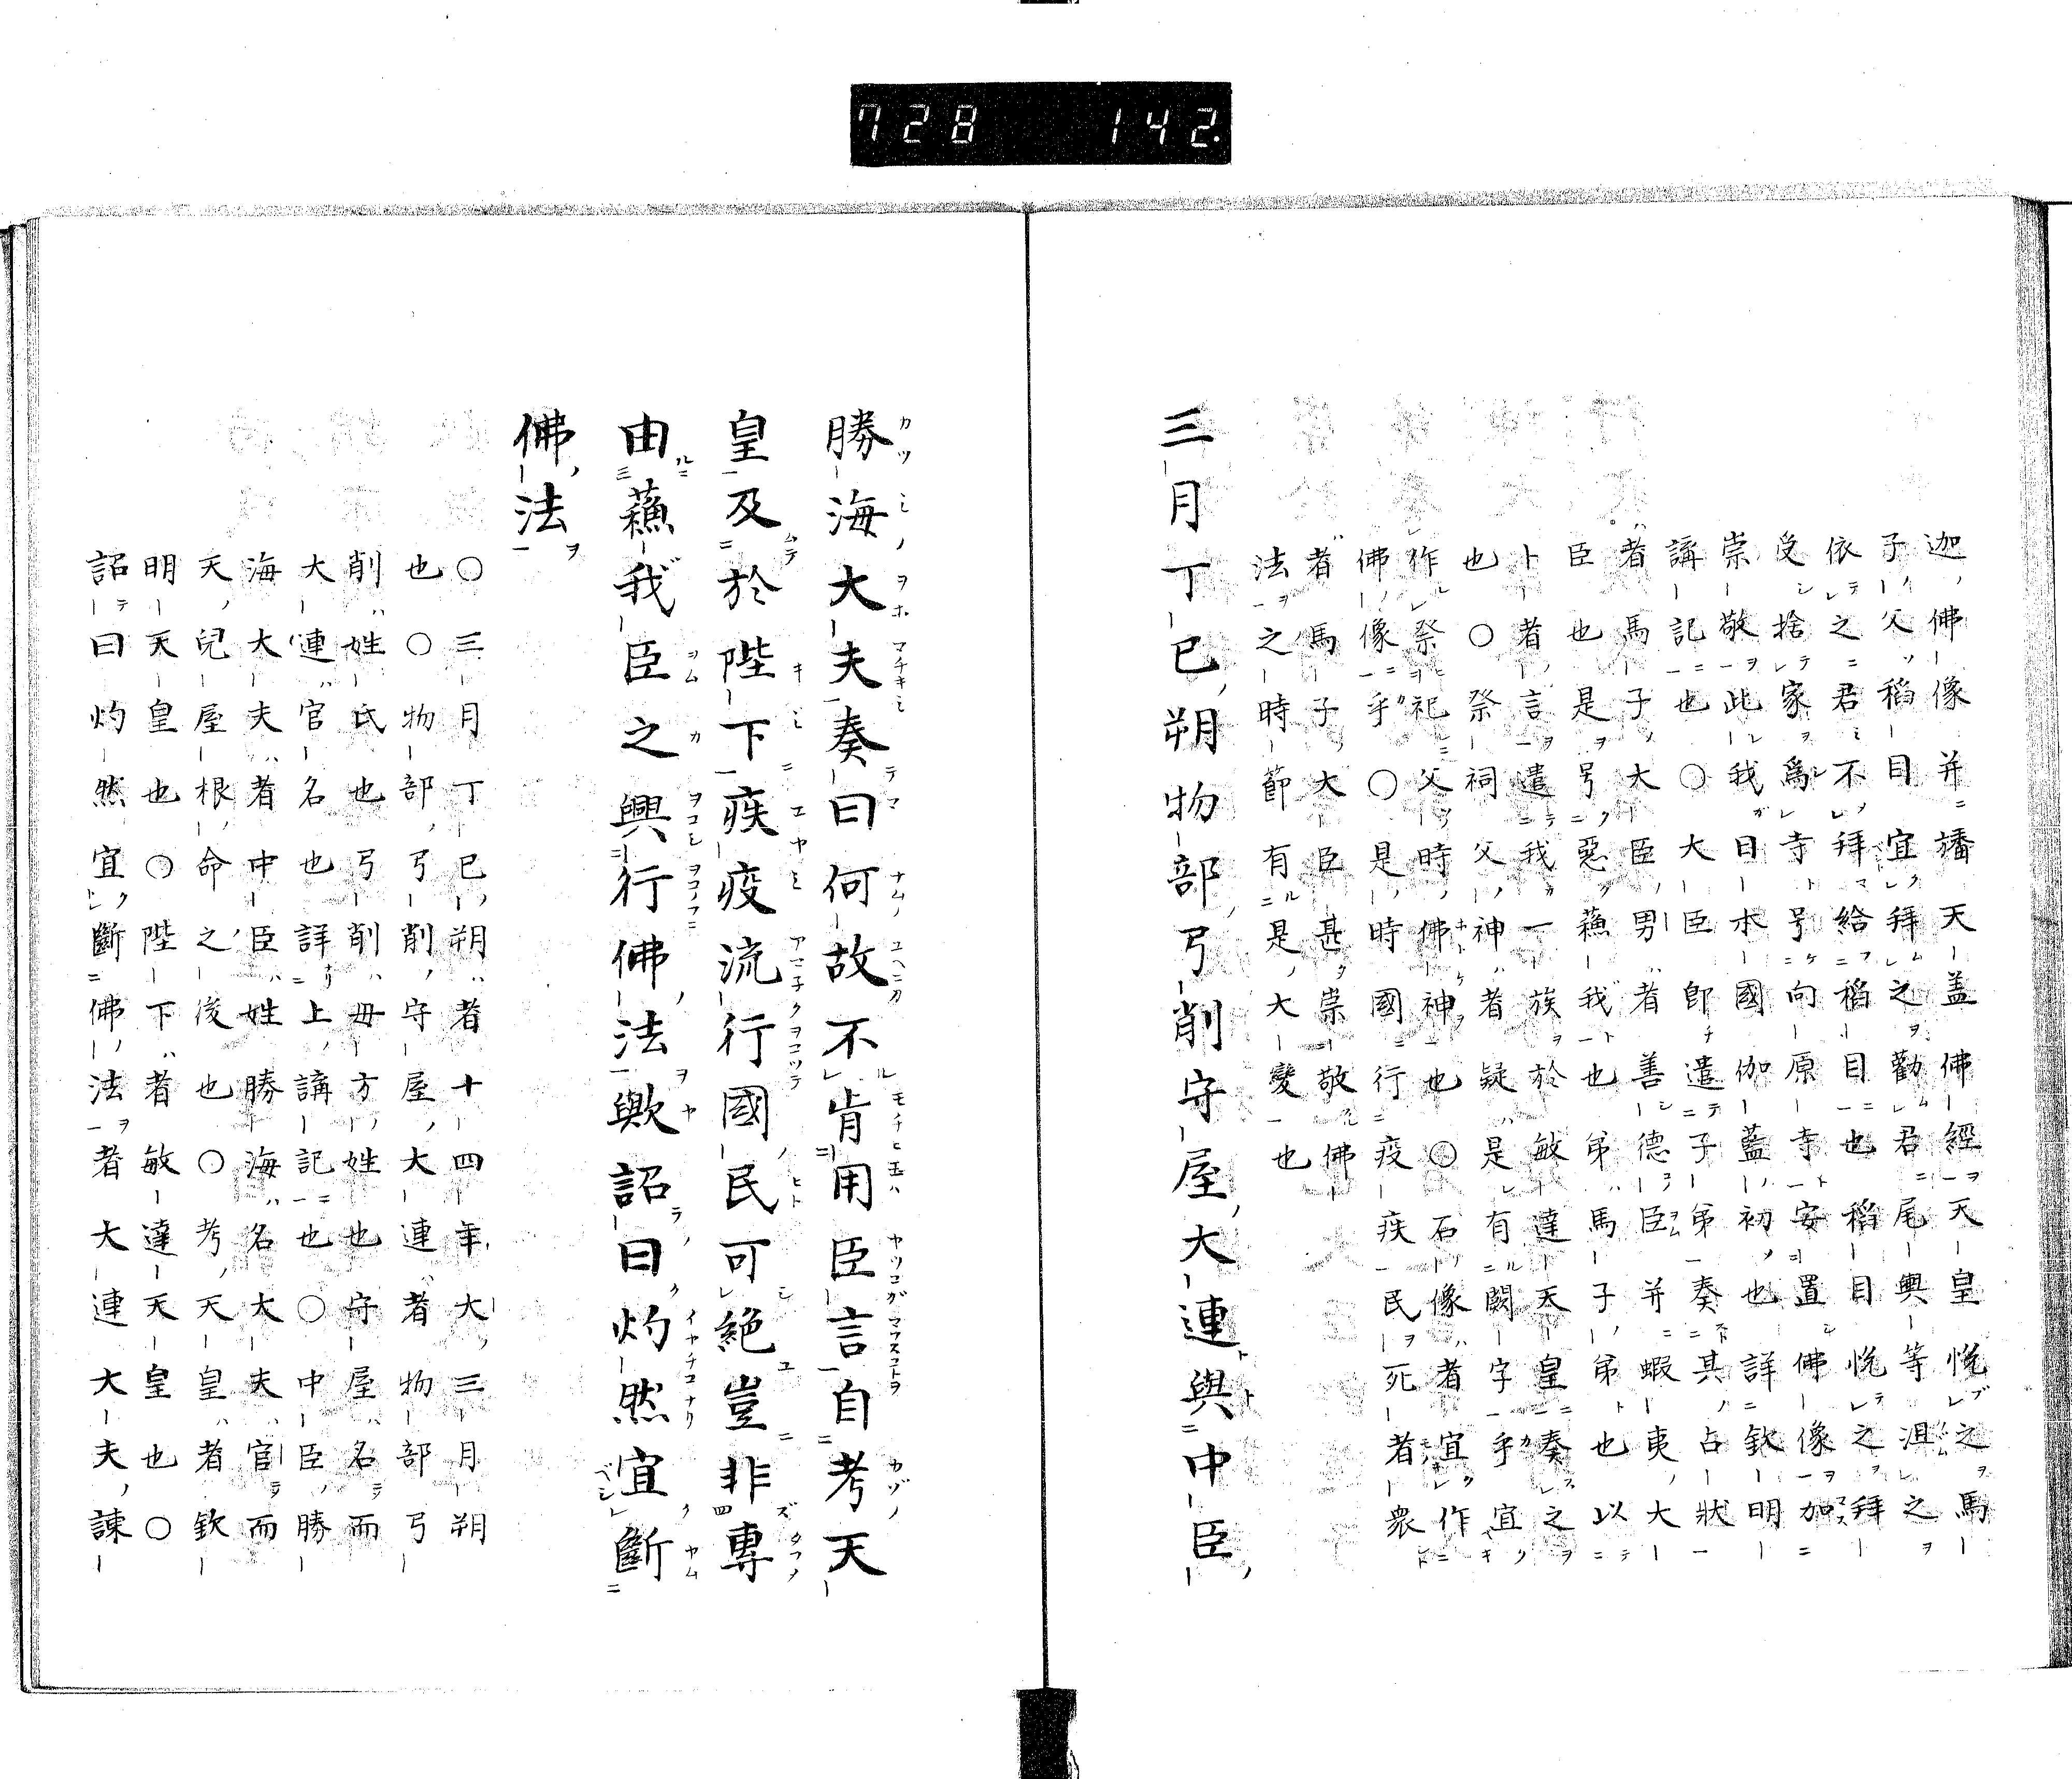 728 142
迦佛像并旙天盖佛經天皇悅之馬
子父稻目宜拜之勸君尾輿等沮之
依之君不拜給稻目也稻目悅之拜
受捨家爲寺号向原寺安置佛像加
崇敬此我日本國伽藍初也詳欽明
講記也○大臣即遣子弟奏其占狀
者馬子大臣男者善德臣并蝦夷大
臣也是号惡蘓我也弟馬子弟也以
卜者言遣我一族於敏達天皇奏之
也○祭祠父神者疑是有闕字乎宜
作祭祀父時佛神也○石像者宜作
佛像乎○是時國行疫疾民死者衆
者馬子大臣甚崇敬佛
法之時節有是大變也
三月丁巳朔物部弓削守屋大連與中臣
勝海大夫奏曰何故不肯用臣言自考天
皇及於陛下疾疫流行國民可絕豈非專
由蘓我臣之興行佛法歟詔曰灼然宜斷
佛法
○三月丁巳朔者十四年大三月朔
也○物部弓削守屋大連者物部弓
削姓氏也弓削母方姓也守屋名而
大連官名也詳上講記也○中臣勝
海大夫者中臣姓勝海名大夫官而
天兒屋根命之後也○考天皇者欽
明天皇也○陛下者敏達天皇也○
詔曰灼然宜斷佛法者大連大夫諌